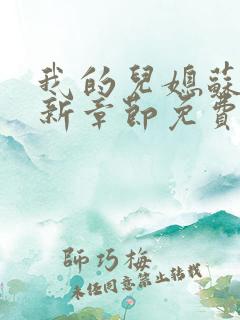 我的兒媳蘇
新章節免費
師巧梅
未任同意禁止轉載